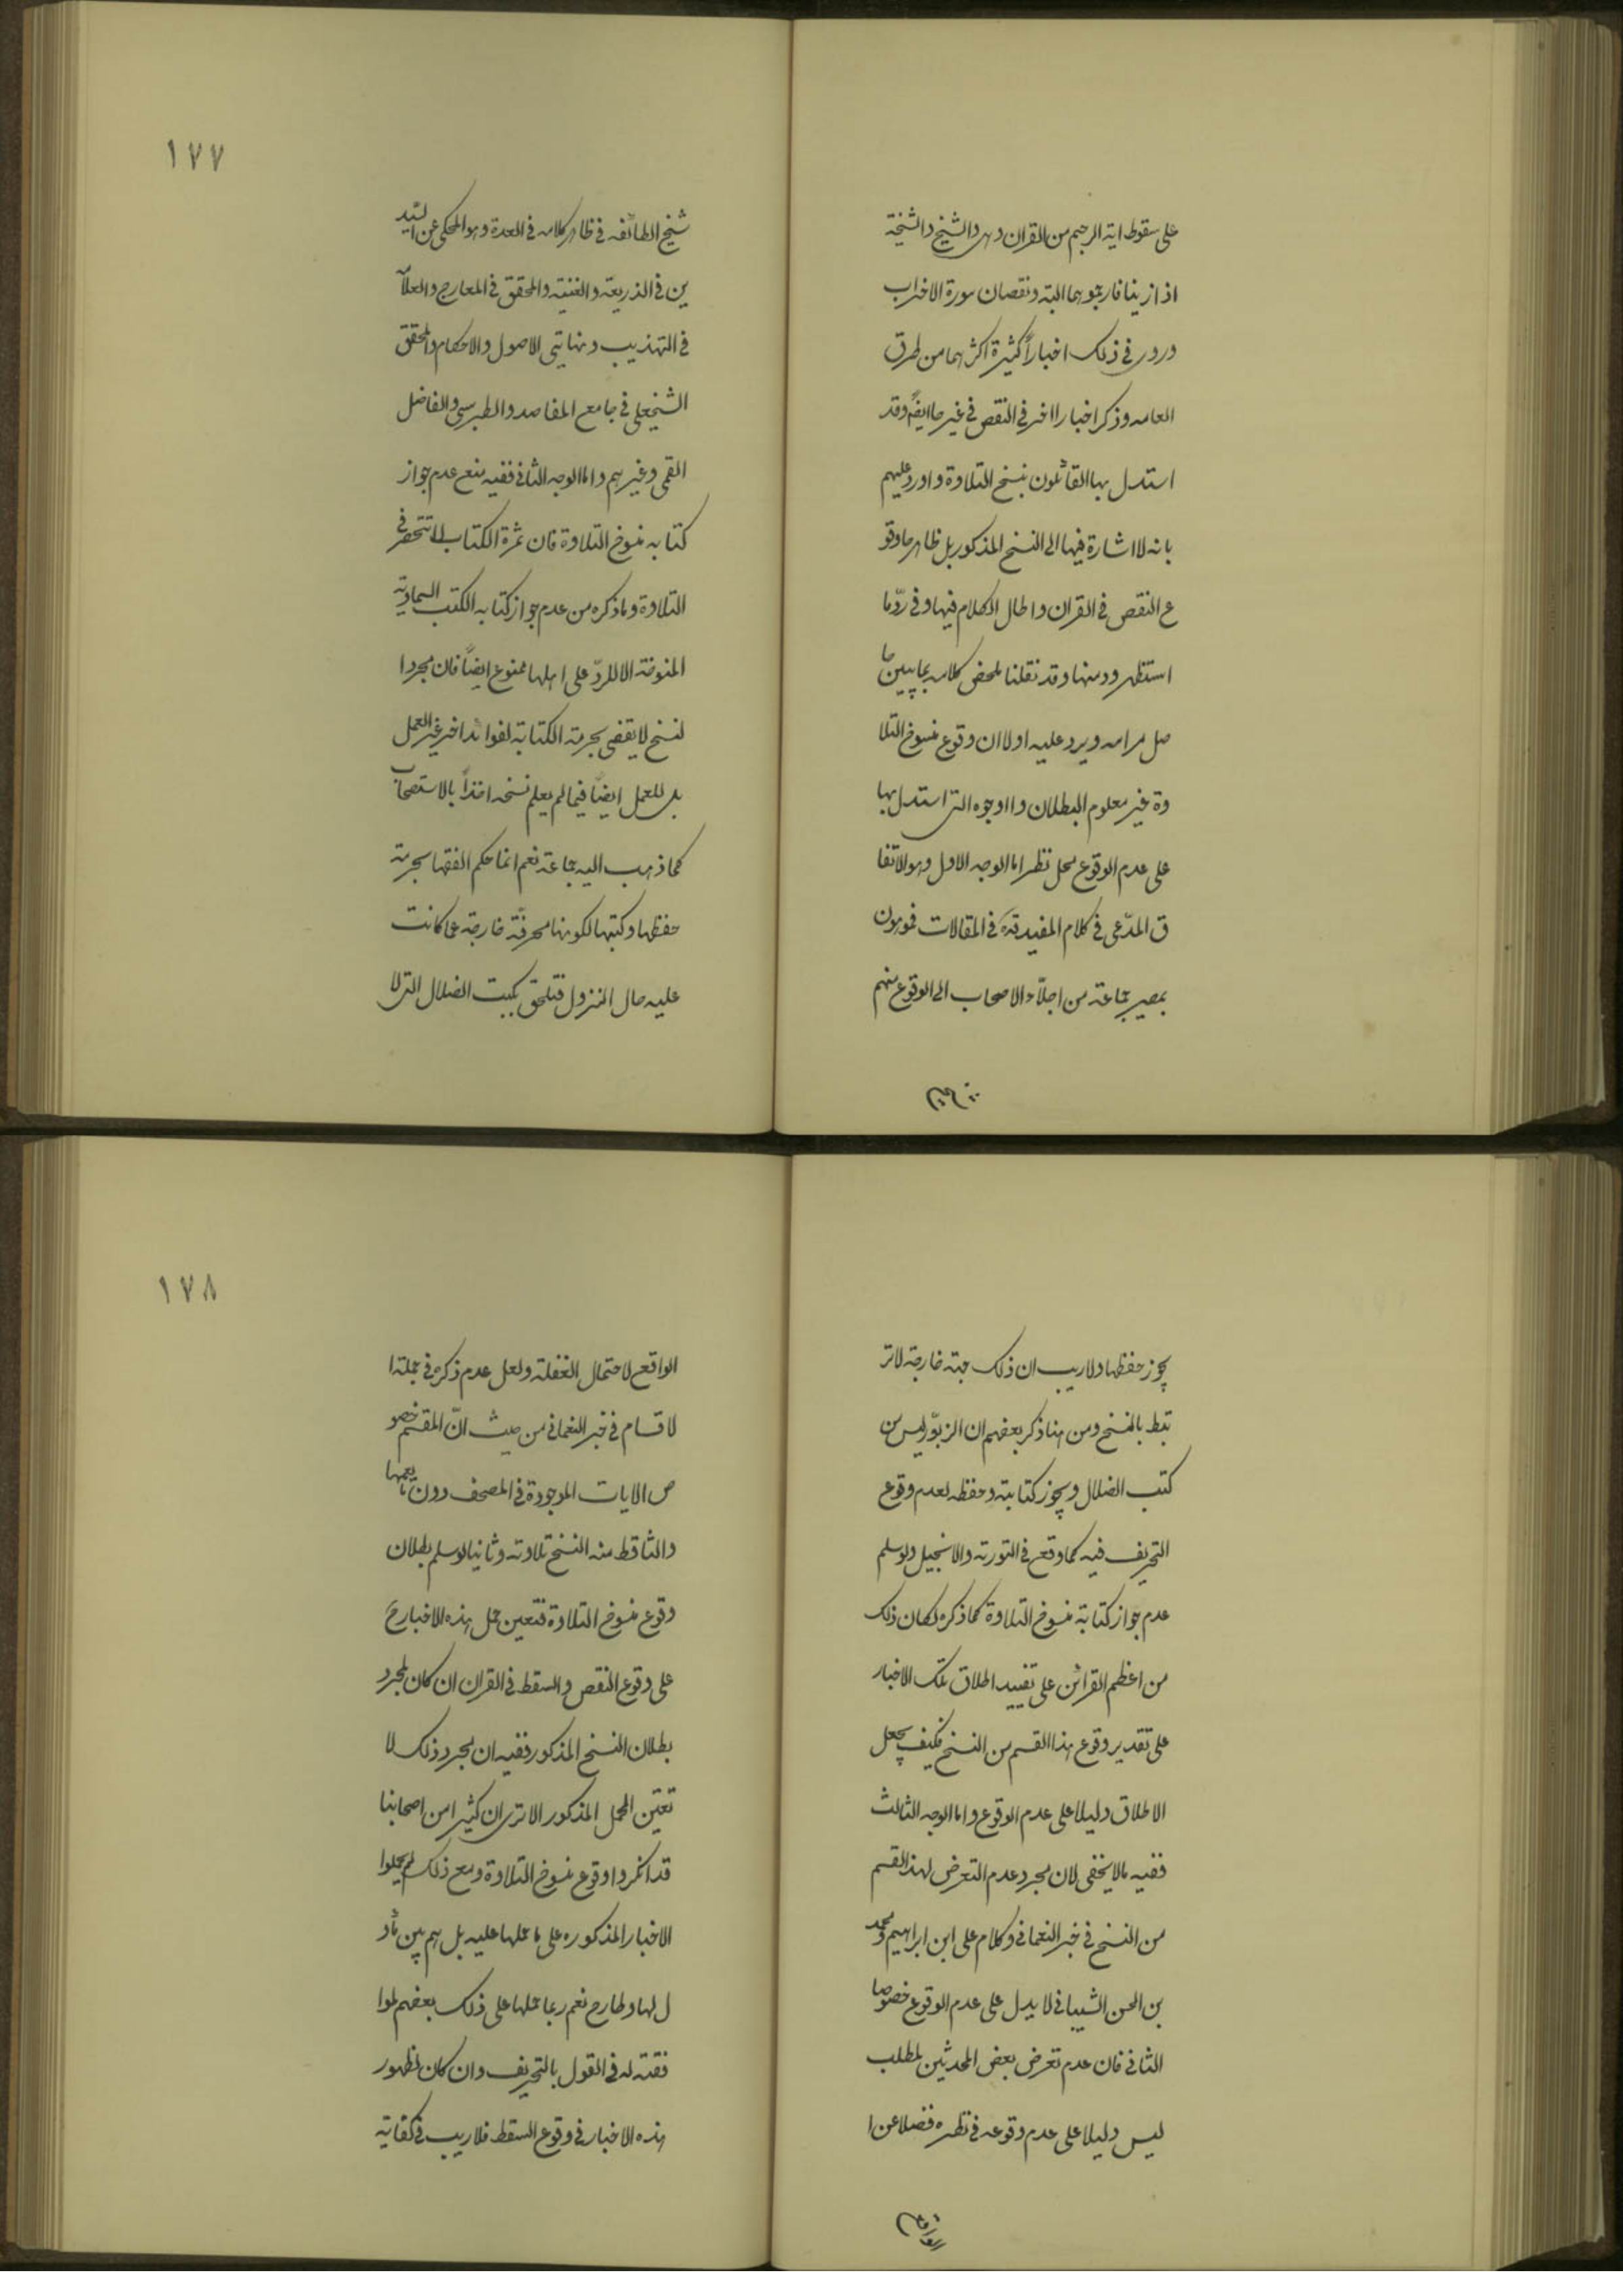 على سقوط اية الرجم من القران وهى والشيخ والشيخة
اذا زينا فارجموهما البته ونقصان سورة الاحزاب
ورود فى ذلك اخباراً كثيرة اكثرهما من طرق
العامه وذكر اخبارا اخر فى النقص فى غيرهما ايضً وقد
استدل بها القائلون بنسخ التلاوة واورد عليهم
بانه لا اشارة فيها الى النسخ المذكور بل ظاهرها وقو
ع النقص فى القران واطال الكلام فيها وفى ردّ ما
استظهروه منها وقد نقلنا ملخص كلامه بما يبين حا
صل مرامه ويرد عليه اولا ان وقوع منسوخ التلا
وة غير معلوم البطلان والوجوه التى استدل بها
على عدم الوقوع محل نظر اما الوجه الاول وهو الاتفا
ق المدّعى فى كلام المفيد قده فى المقالات فموهون
بمصير جماعة من اجلّاء الاصحاب الى الوقوع منهم
شيخ
١٧٧
شيخ الطائفه فى ظاهر كلامه فى العدة وهو المحكى عن السيد
ين فى الذريعة والغنية والمحقق فى المعارج والعلا
فى التهذيب ونهايتى الاصول والاحكام والمحقق
الشيخ على فى جامع المقاصد والطبرسى والفاضل
القمى وغيرهم واما الوجه الثانى ففيه منع عدم جواز
كتابه منسوخ التلاوة فان ثمرة الكتاب لا تنحصر فى
التلاوة وما ذكره من عدم جواز كتابه الكتب السماوية
المنوخة الا للردّ على اهلها ممنوع ايضاً فان مجردا
لنسخ لا يقضى بحرمة الكتابة لفوائد اخر غير العمل
بل للعمل ايضاً فيما لم يعلم نسخه اخذاً بالاستصحاب
كما ذهب اليه جماعة نعم انما حكم الفقها بحرمة
حفظها وكتبها لكونها محرفّة خارجة عما كانت
عليه حال النزول فتلحق بكتب الضلال التى لا
يجوز حفظها ولا ريب ان ذلك جهة خارجة لا تر
تبط بالنسخ ومن هنا ذكر بعضهم ان الزبوّر ليس من
كتب الضلال ويجوز كتابته وحفظه لعدم وقوع
التحريف فيه كما وقع فى التورته والانجيل ولو سلم
عدم جواز كتابة منسوخ التلاوة كما ذكره لكان ذلك
من اعظم القرائن على تقييد اطلاق تلك الاخبار
على تقدير وقوع هذا القسم من النسخ فكيف يجعل
الاطلاق دليلا على عدم الوقوع واما الوجه الثالث
ففيه ما لا يخفى لان مجرد عدم التعرض لهذا القسم
من النسخ فى خبر النعمانى وكلام على ابن ابراهيم ومحمد
بن الحسن الشيبانى لا يدل على عدم الوقوع خصوصا
الثانى فان عدم تعرض بعض المحدثين لمطلب
ليس دليلا على عدم وقوعه فى نظره فضلا عن ا
الواقع
١٧٨
الواقع لاحتمال الغفلة ولعل عدم ذكره فى جملة ا
لاقسام فى خبر النعمانى من حيث انّ المقسم خصو
ص الايات الموجودة فى المصحف دون ما يعمها
والثاقط منه النسخ تلاوته وثانيا لو سلم بطلان
وقوع منسوخ التلاوة فتعين حمل هذه الاخبار ح
على وقوع النقص والسقط فى القران ان كان لمجرد
بطلان النسخ المذكور ففيه ان مجرد ذلك لا
تعيّن المحمل المذكور الا ترى ان كثيرا من اصحابنا
قد انكروا وقوع منسوخ التلاوة ومع ذلك لم يحملوا
الاخبار المذكوره على ما حملها عليه بل هم بين مأو
ل لها وطارح نعم ربما حملها على ذلك بعضهم لموا
فقته له فى القول بالتحريف وان كان لظهور
هذه الاخبار فى وقوع السقط فلا ريب فى كفاية